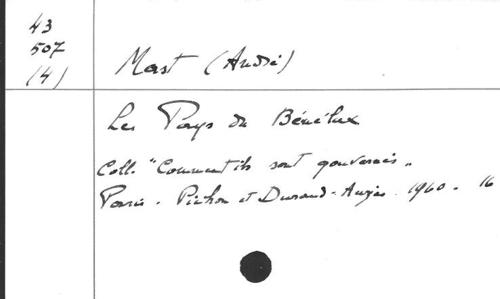 43
507
(4)
Mast (André)
Les Pays du Bénélux
Coll. "Comment ils sont gouvernés"
Paris - Pichon et Durand-Auzias. 1960 - 16